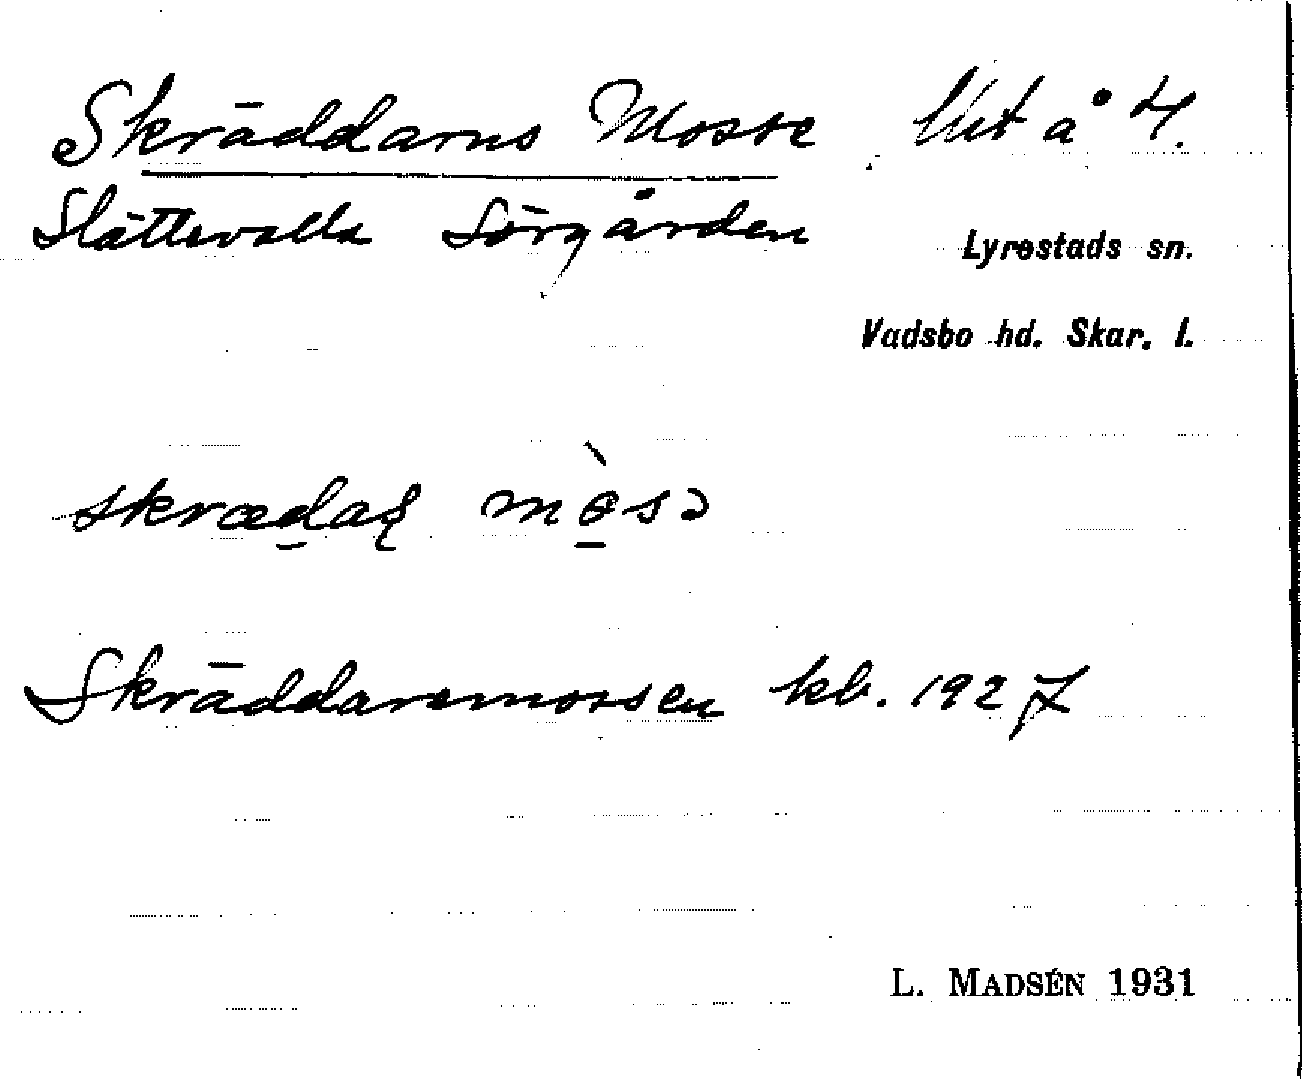 Skräddarns Mosse Utå 4.
Slättevalla Sörgården
Lyrestads sn.
Vadsbo hd. Skar. l.
mòsə
Skräddaremossen kb. 1927
L. MADSÉN 1931